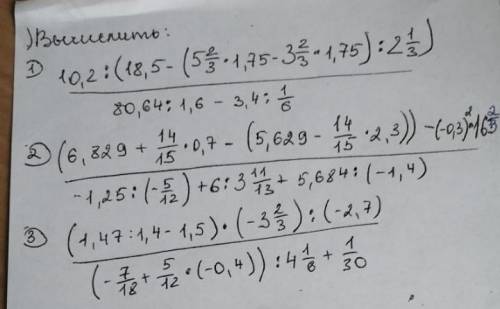 ) Вычислить:
1) 10,2 : (18,5 - (5 2/3 · 1,75 - 3 2/3 · 1,75) : 2 1/3)
80,64 : 1,6 - 3,4 : 1/6
2) (6,829 + 14/15 · 0,7 - (5,629 - 14/15 · 2,3)) - (-0,3)² · 16 2/3
-1,25 : (-5/12) + 6 : 3 11/13 + 5,684 : (-1,4)
3) (1,47 : 1,4 - 1,5) · (-3 2/3) : (-2,7)
(-7/18 + 5/12 · (-0,4)) : 4 1/6 + 1/30